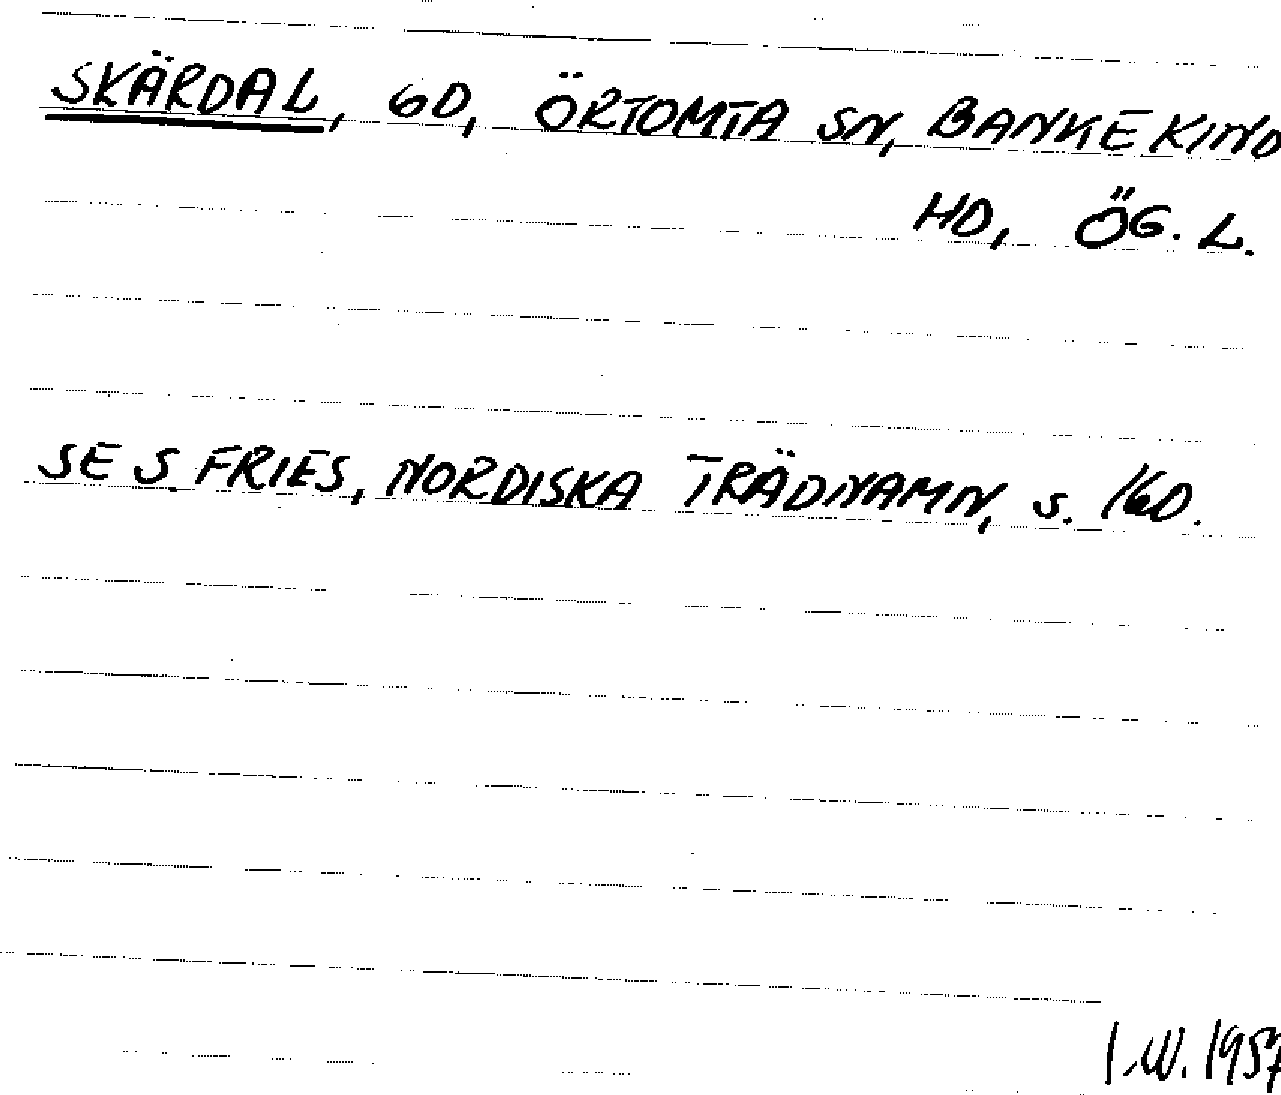 SKÄRDAL, GD, ÖRTOMTA SN, BANKEKIND
HD, ÖG. L.
SE S. FRIES, NORDISKA TRÄDNAMN, S. 160.
1957